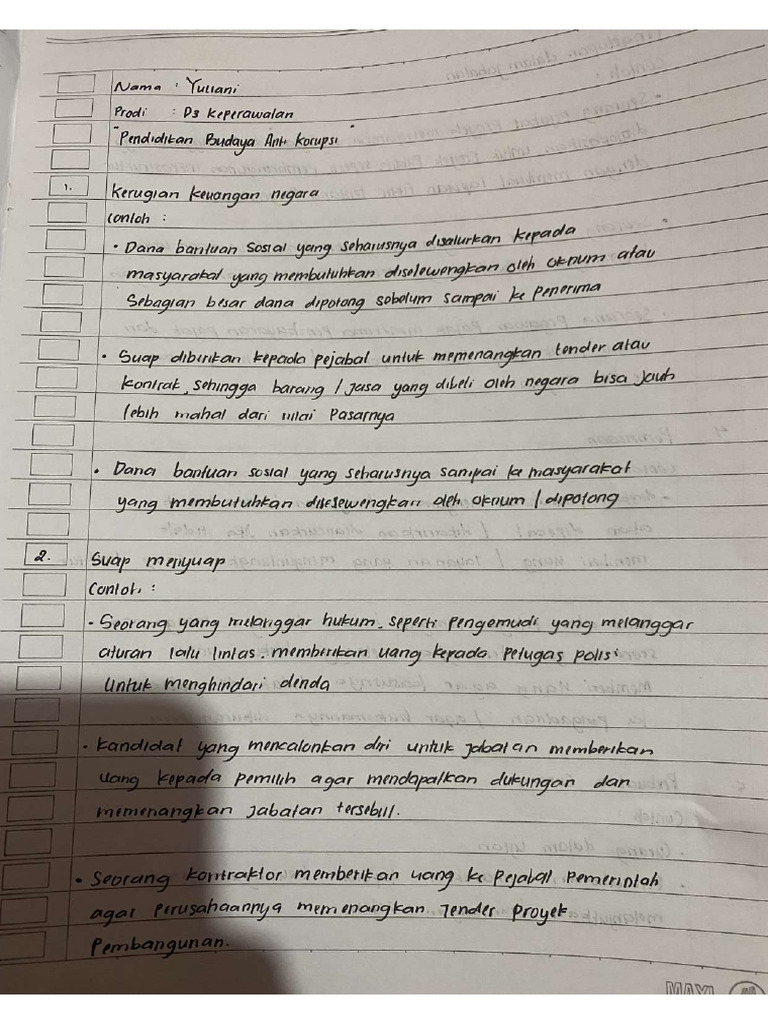 Nama : Yuliani
Prodi : D3 Keperawatan
"Pendidikan Budaya Anti Korupsi"
1. Kerugian keuangan negara
Contoh :
• Dana bantuan sosial yang seharusnya disalurkan kepada
masyarakat yang membutuhkan diselewengkan oleh oknum atau
Sebagian besar dana dipotong sobolum sampai ke penerima
• Suap diberikan kepada pejabat untuk memenangkan tender atau
kontrak, sehingga barang / jasa yang dibeli oleh negara bisa jauh
lebih mahal dari nilai Pasarnya
• Dana bantuan sosial yang seharusnya sampai ke masyarakat
yang membutuhkan disesewengkan oleh oknum / dipotong
2. Suap menyuap
Contoh :
• Seorang yang melanggar hukum, seperti pengemudi yang melanggar
aturan lalu lintas, memberikan uang kepada petugas polisi
Untuk menghindari denda
• Kandidat yang mencalonkan diri untuk jabatan memberikan
uang kepada pemilih agar mendapatkan dukungan dan
memenangkan jabatan tersebut.
• Seorang kontraktor memberikan uang ke pejabat Pemerintah
agar Perusahaannya memenangkan Tender Proyek
Pembangunan.
MAXI